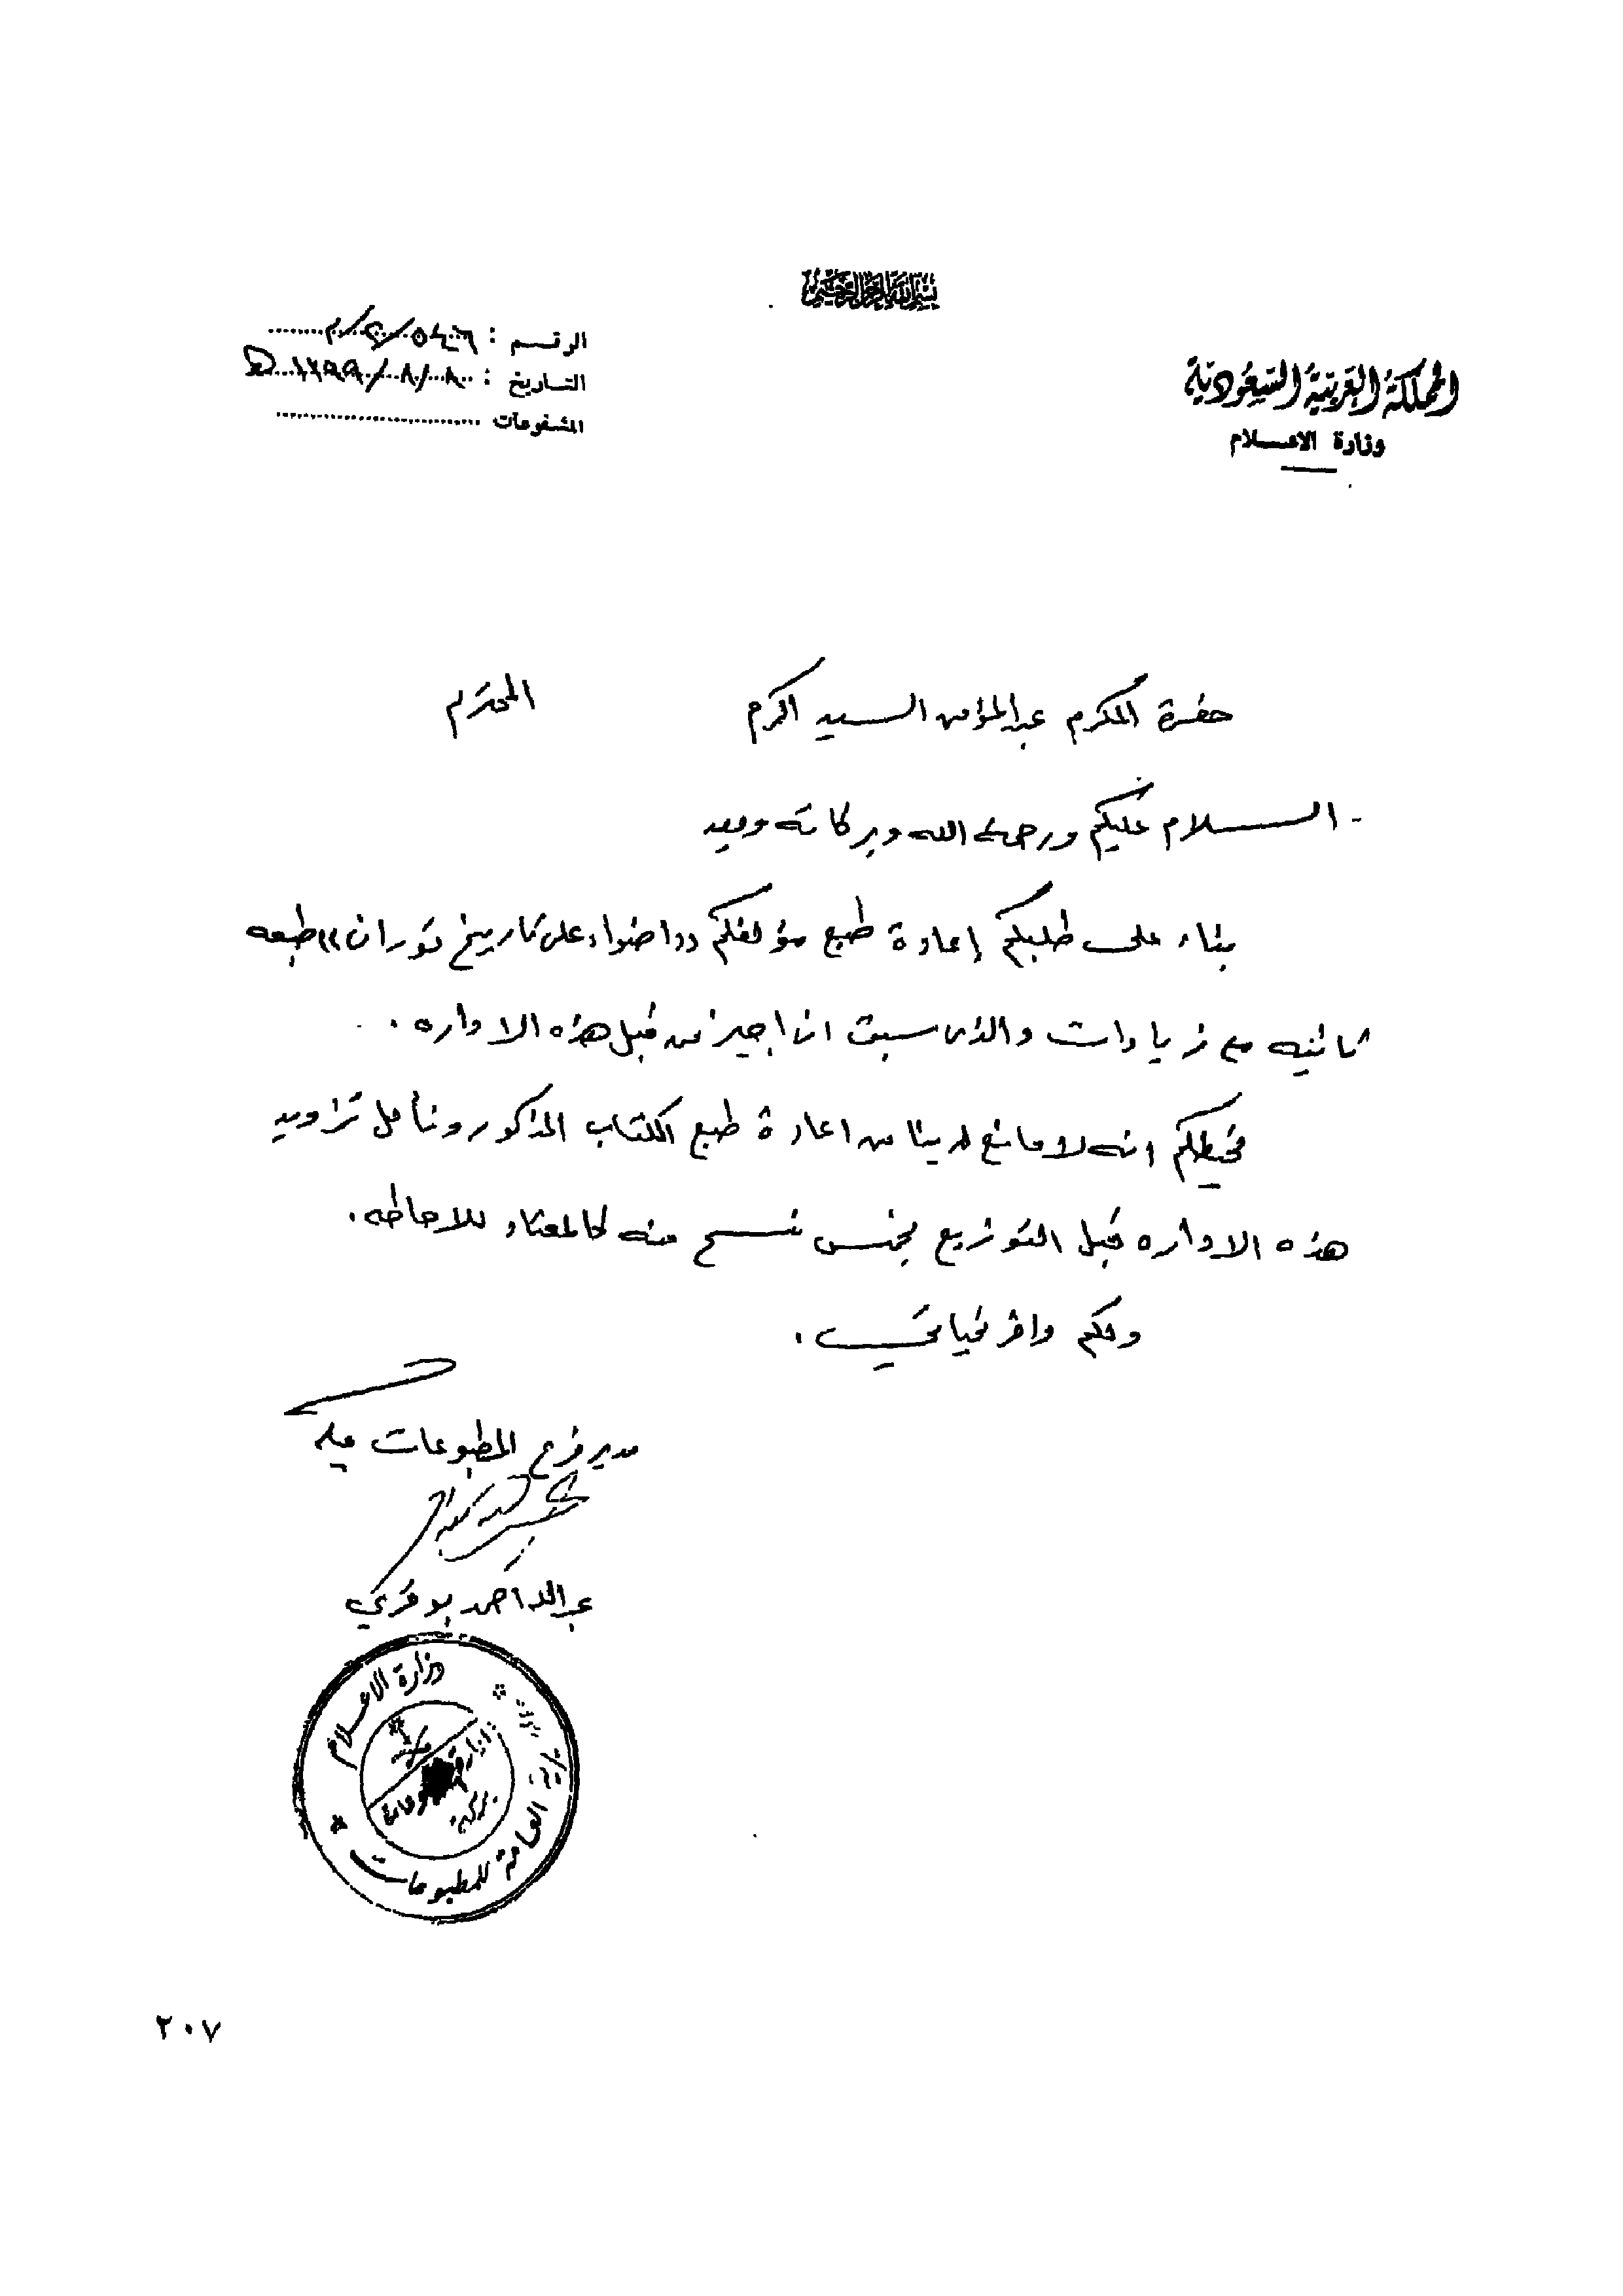 بسم الله الرحمن الرحيم
المملكة العربية السعودية
وزارة الاعلام
الرقم : ٥٤٤٦/٢/م
التاريخ : ٨/٨/١٣٩٩ هـ
المشفوعات
حضرة المكرم عبدالمؤمن السيد اكرم المحترم
السلام عليكم ورحمة الله وبركاته وبعد
بناء على طلبكم إعادة طبع مؤلفكم ((اضواء على تاريخ توران)) طبعه
ثانيه مع زيادات والذى سبق ان اجيز من قبل هذه الاداره .
نحيطكم انه لا مانع لدينا من اعادة طبع الكتاب المذكور ونأمل تزاويد
هذه الاداره قبل التوزيع بخمس نسخ منه كالمعتاد للاحاطه .
ولكم وافر تحياتي .
مدير فرع المطبوعات بمكة
عبدالله احمد بوقري
وزارة الاعلام
العامة للمطبوعات
٢٠٧